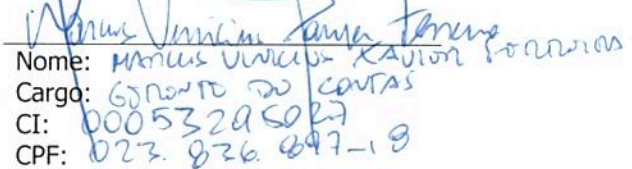 Marcus Vinicius Xavier Ferreira
Nome: MARCUS VINICIUS XAVIER FERREIRA
Cargo: GERENTE DE CONTAS
CI:
CPF: 023.836.897-18